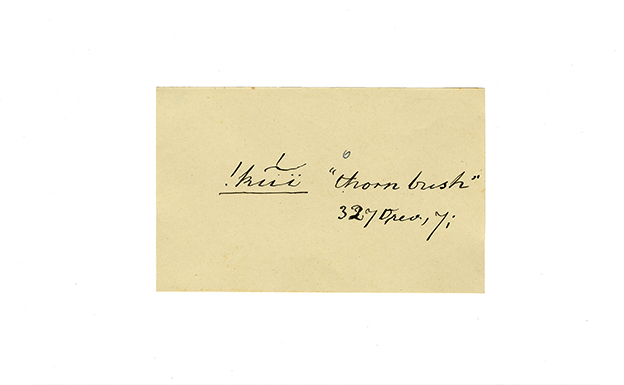 !kuïï "thorn bush"
327 Orev., 7;